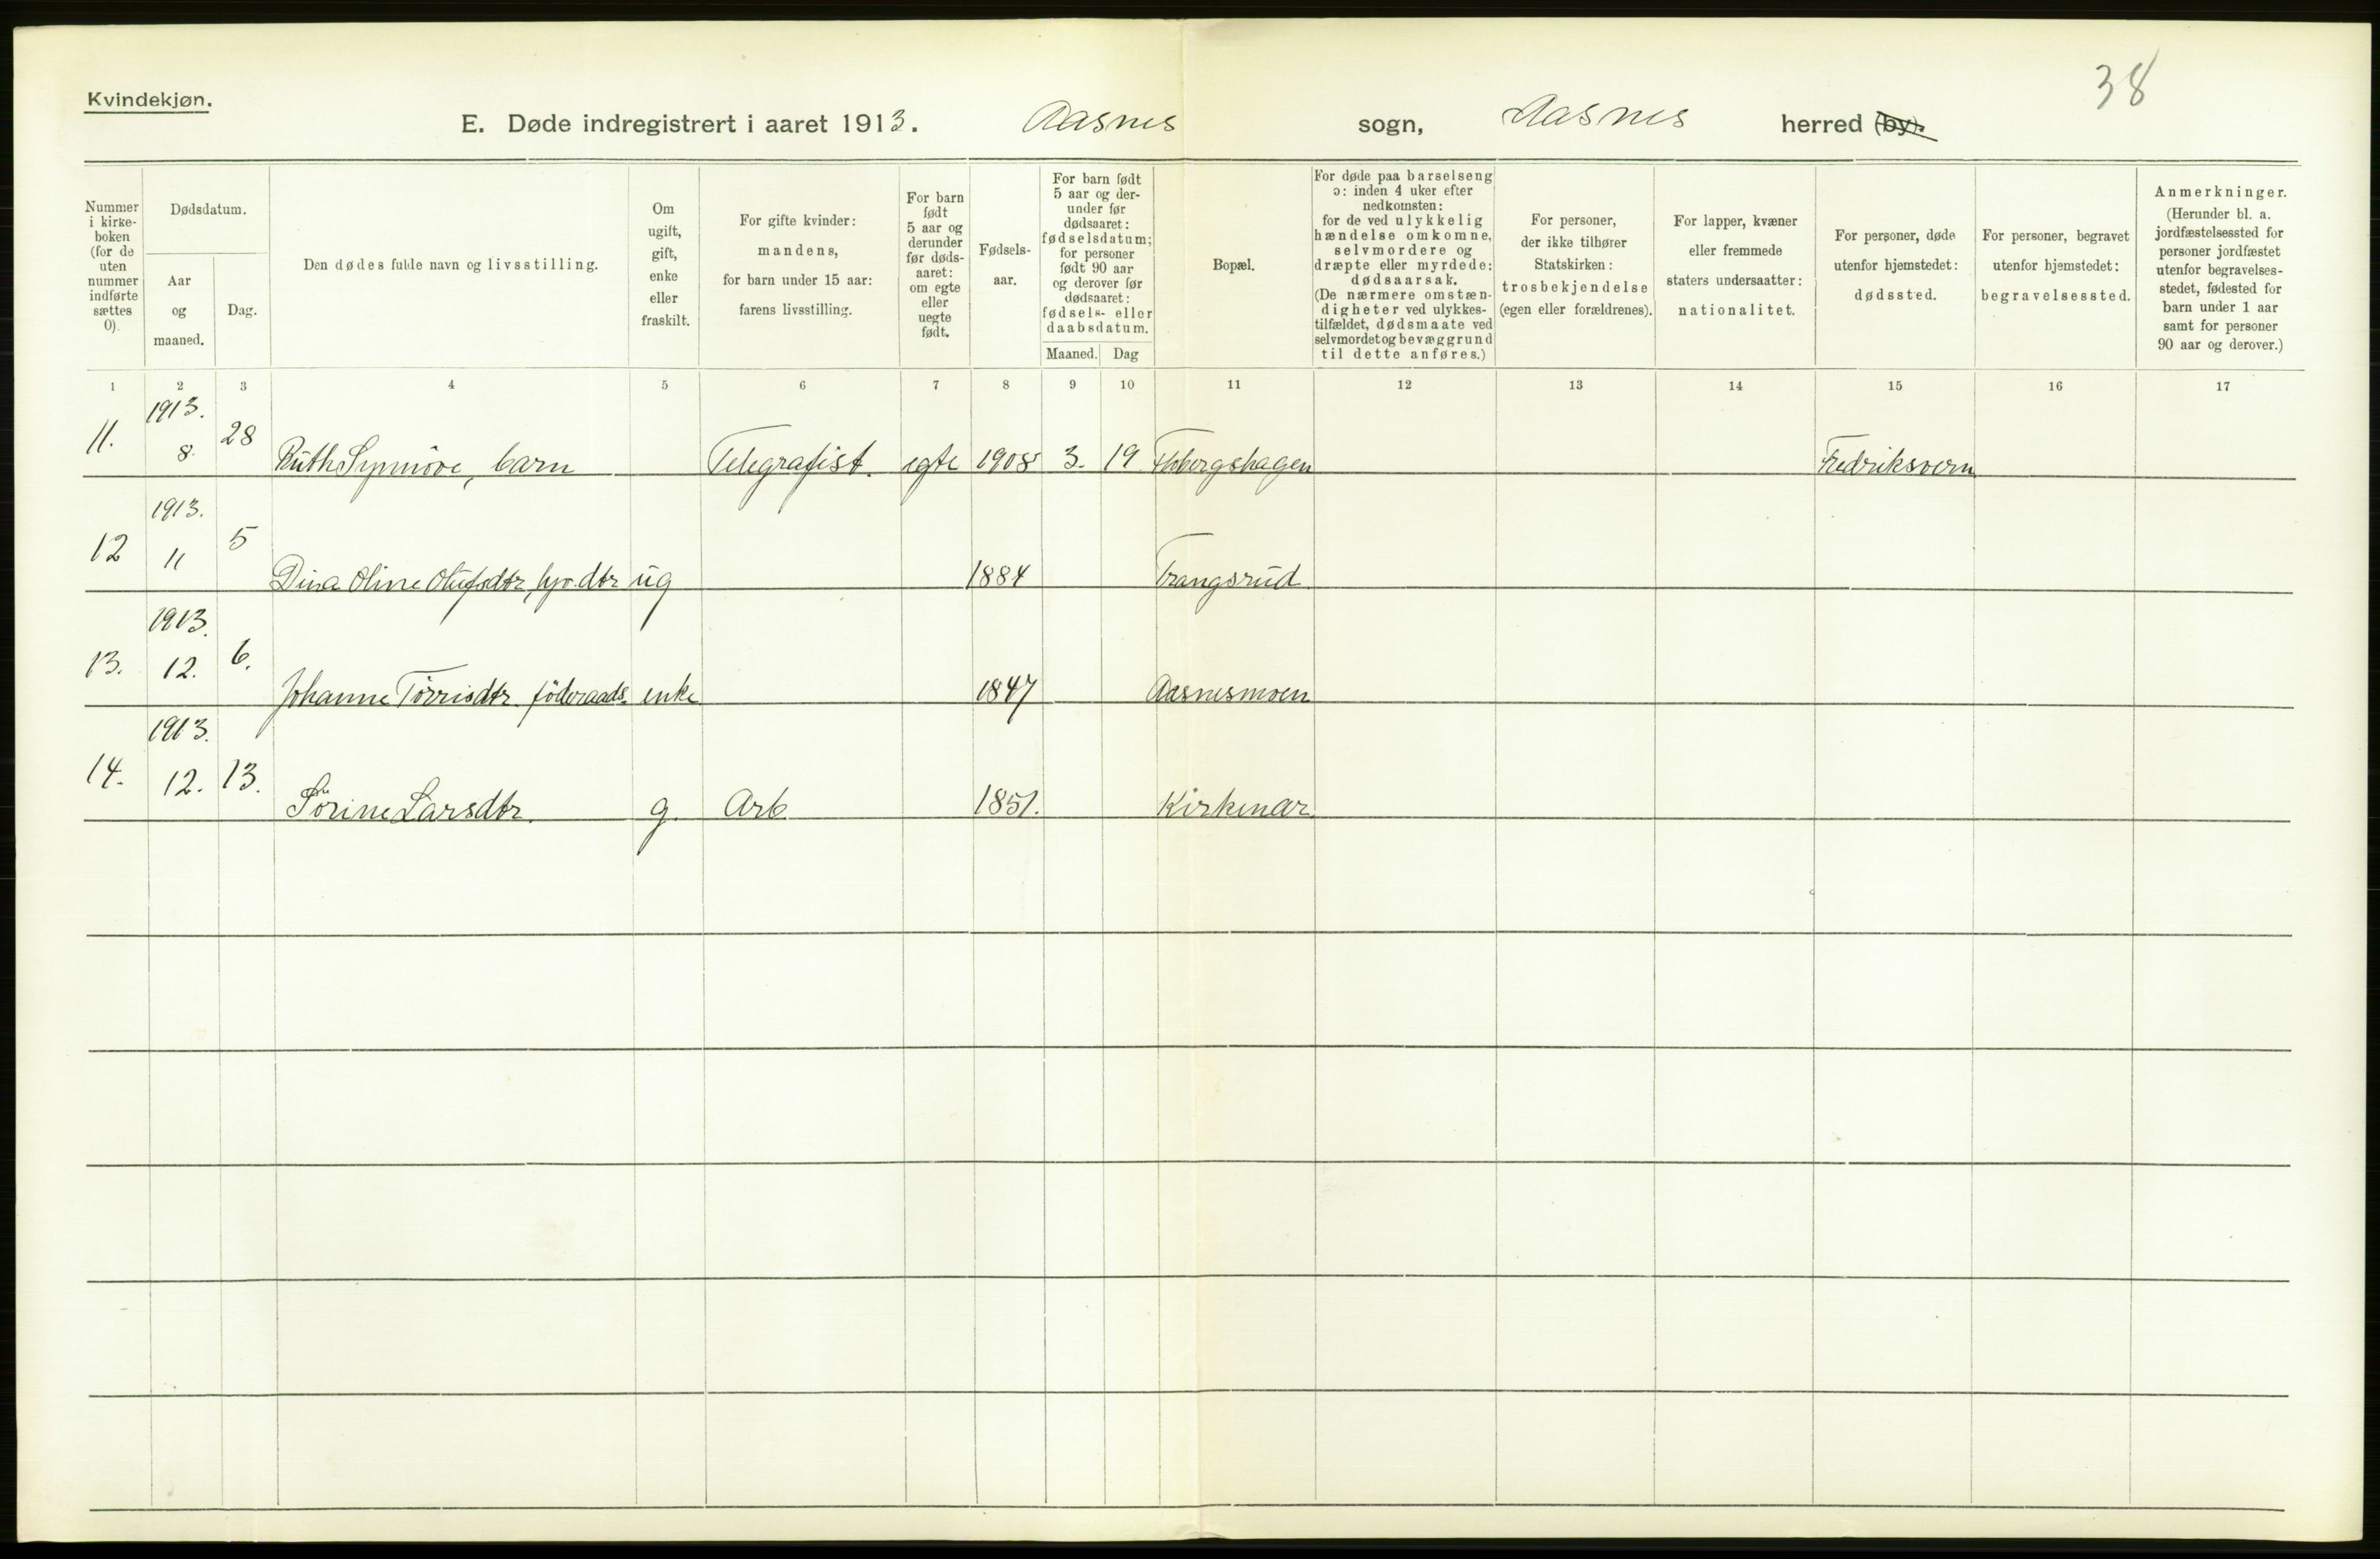 38
Kvindekjøn.
E. Døde indregistrert i aaret 1913. Aasnes sogn, Aasnes herred (by).
Nummer i kirkeboken (for de uten nummer indførte sættes 0).
Dødsdatum.
Aar og maaned.
Dag.
Den dødes fulde navn og livsstilling.
Om ugift, gift, enke eller fraskilt.
For gifte kvinder: mandens, for barn under 15 aar: farens livsstilling.
For barn født 5 aar og derunder før dødsaaret: om egte eller uegte født.
Fødselsaar.
For barn født 5 aar og derunder før dødsaaret: fødselsdatum; for personer født 90 aar og derover før dødsaaret: fødsels- eller daabsdatum.
Maaned. Dag
Bopæl.
For døde paa barselseng ɔ: inden 4 uker efter nedkomsten: for de ved ulykkelig hændelse omkomne, selvmordere og dræpte eller myrdede: dødsaarsak. (De nærmere omstændigheter ved ulykkestilfældet, dødsmaate ved selvmordet og bevæggrund til dette anføres.)
For personer, der ikke tilhører Statskirken: trosbekjendelse (egen eller forældrenes).
For lapper, kvæner eller fremmede staters undersaatter: nationalitet.
For personer, døde utenfor hjemstedet: dødssted.
For personer, begravet utenfor hjemstedet: begravelsessted.
Anmerkninger. (Herunder bl. a. jordfæstelsessted for personer jordfæstet utenfor begravelsesstedet, fødested for barn under 1 aar samt for personer 90 aar og derover.)
1 2 3 4 5 6 7 8 9 10 11 12 13 14 15 16 17
11. 1913. 8. 28 Ruth Synnöve, barn Telegrafist. egte 1908 3. 19 Fredriksvern
12 1913. 11 5 Dina Oline Olufsdtr, ug 1884 Trangsrud
13. 1913. 12. 6. Johanne Törrisdtr. föderaads enke 1847 Aasnesmoen
14. 1913. 12. 13. Sörine Larsdtr. g. Arb 1851. Kirkenær